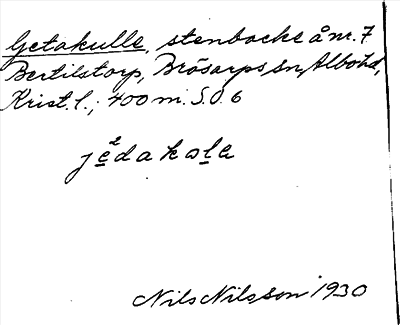 Getakulle, stenbacke å nr. 7
Bertilstorp, Brösarps sn, Albohd,
Krist. l.; 400 m. S.O. 6
je²dakɷlɐ
Nils Nilsson 1930